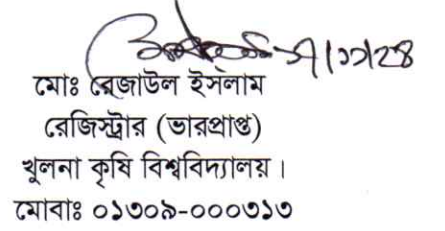 ৭/১১/২৪
মোঃ রেজাউল ইসলাম
রেজিস্ট্রার (ভারপ্রাপ্ত)
খুলনা কৃষি বিশ্ববিদ্যালয়।
মোবাঃ ০১৩০৯-০০০৩১৩